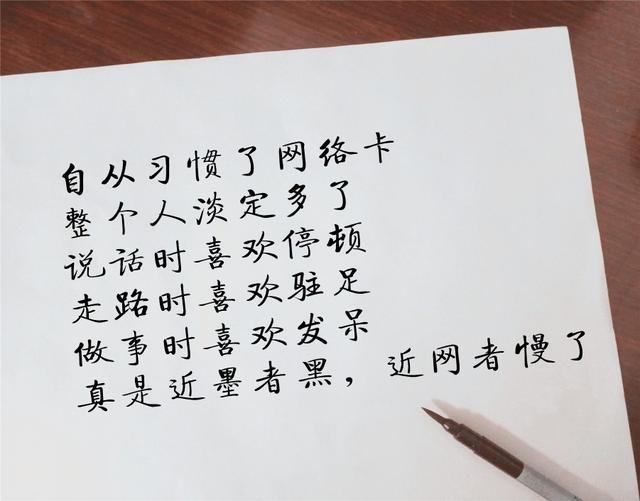 自从习惯了网络卡
整个人淡定多了
说话时喜欢停顿
走路时喜欢驻足
做事时喜欢发呆
真是近墨者黑，近网者慢了